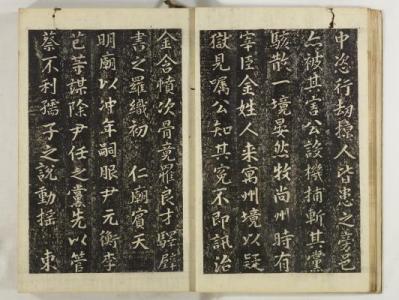 中恣行劫掠人皆患之旁邑
亦被其害公設機捕斬其黨
駭散一境晏然牧尚州時有
宰臣金姓人来寓州境以疑
獄見囑公知其冤不即訊治
金含憤次骨竟罹良才驛壁
書之羅織初 仁廟賓天
明廟以冲年嗣服尹元衡李
芑等謀除尹任之黨先以管
蔡不利孺子之說動摇 東